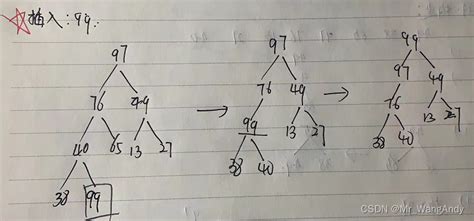 插入:99.
97 97 99
76 49 76 49 97 49
40 65 13 27 99 13 27 76 13 27
38 99 38 40 38 40
CSDN @Mr_WangAndy